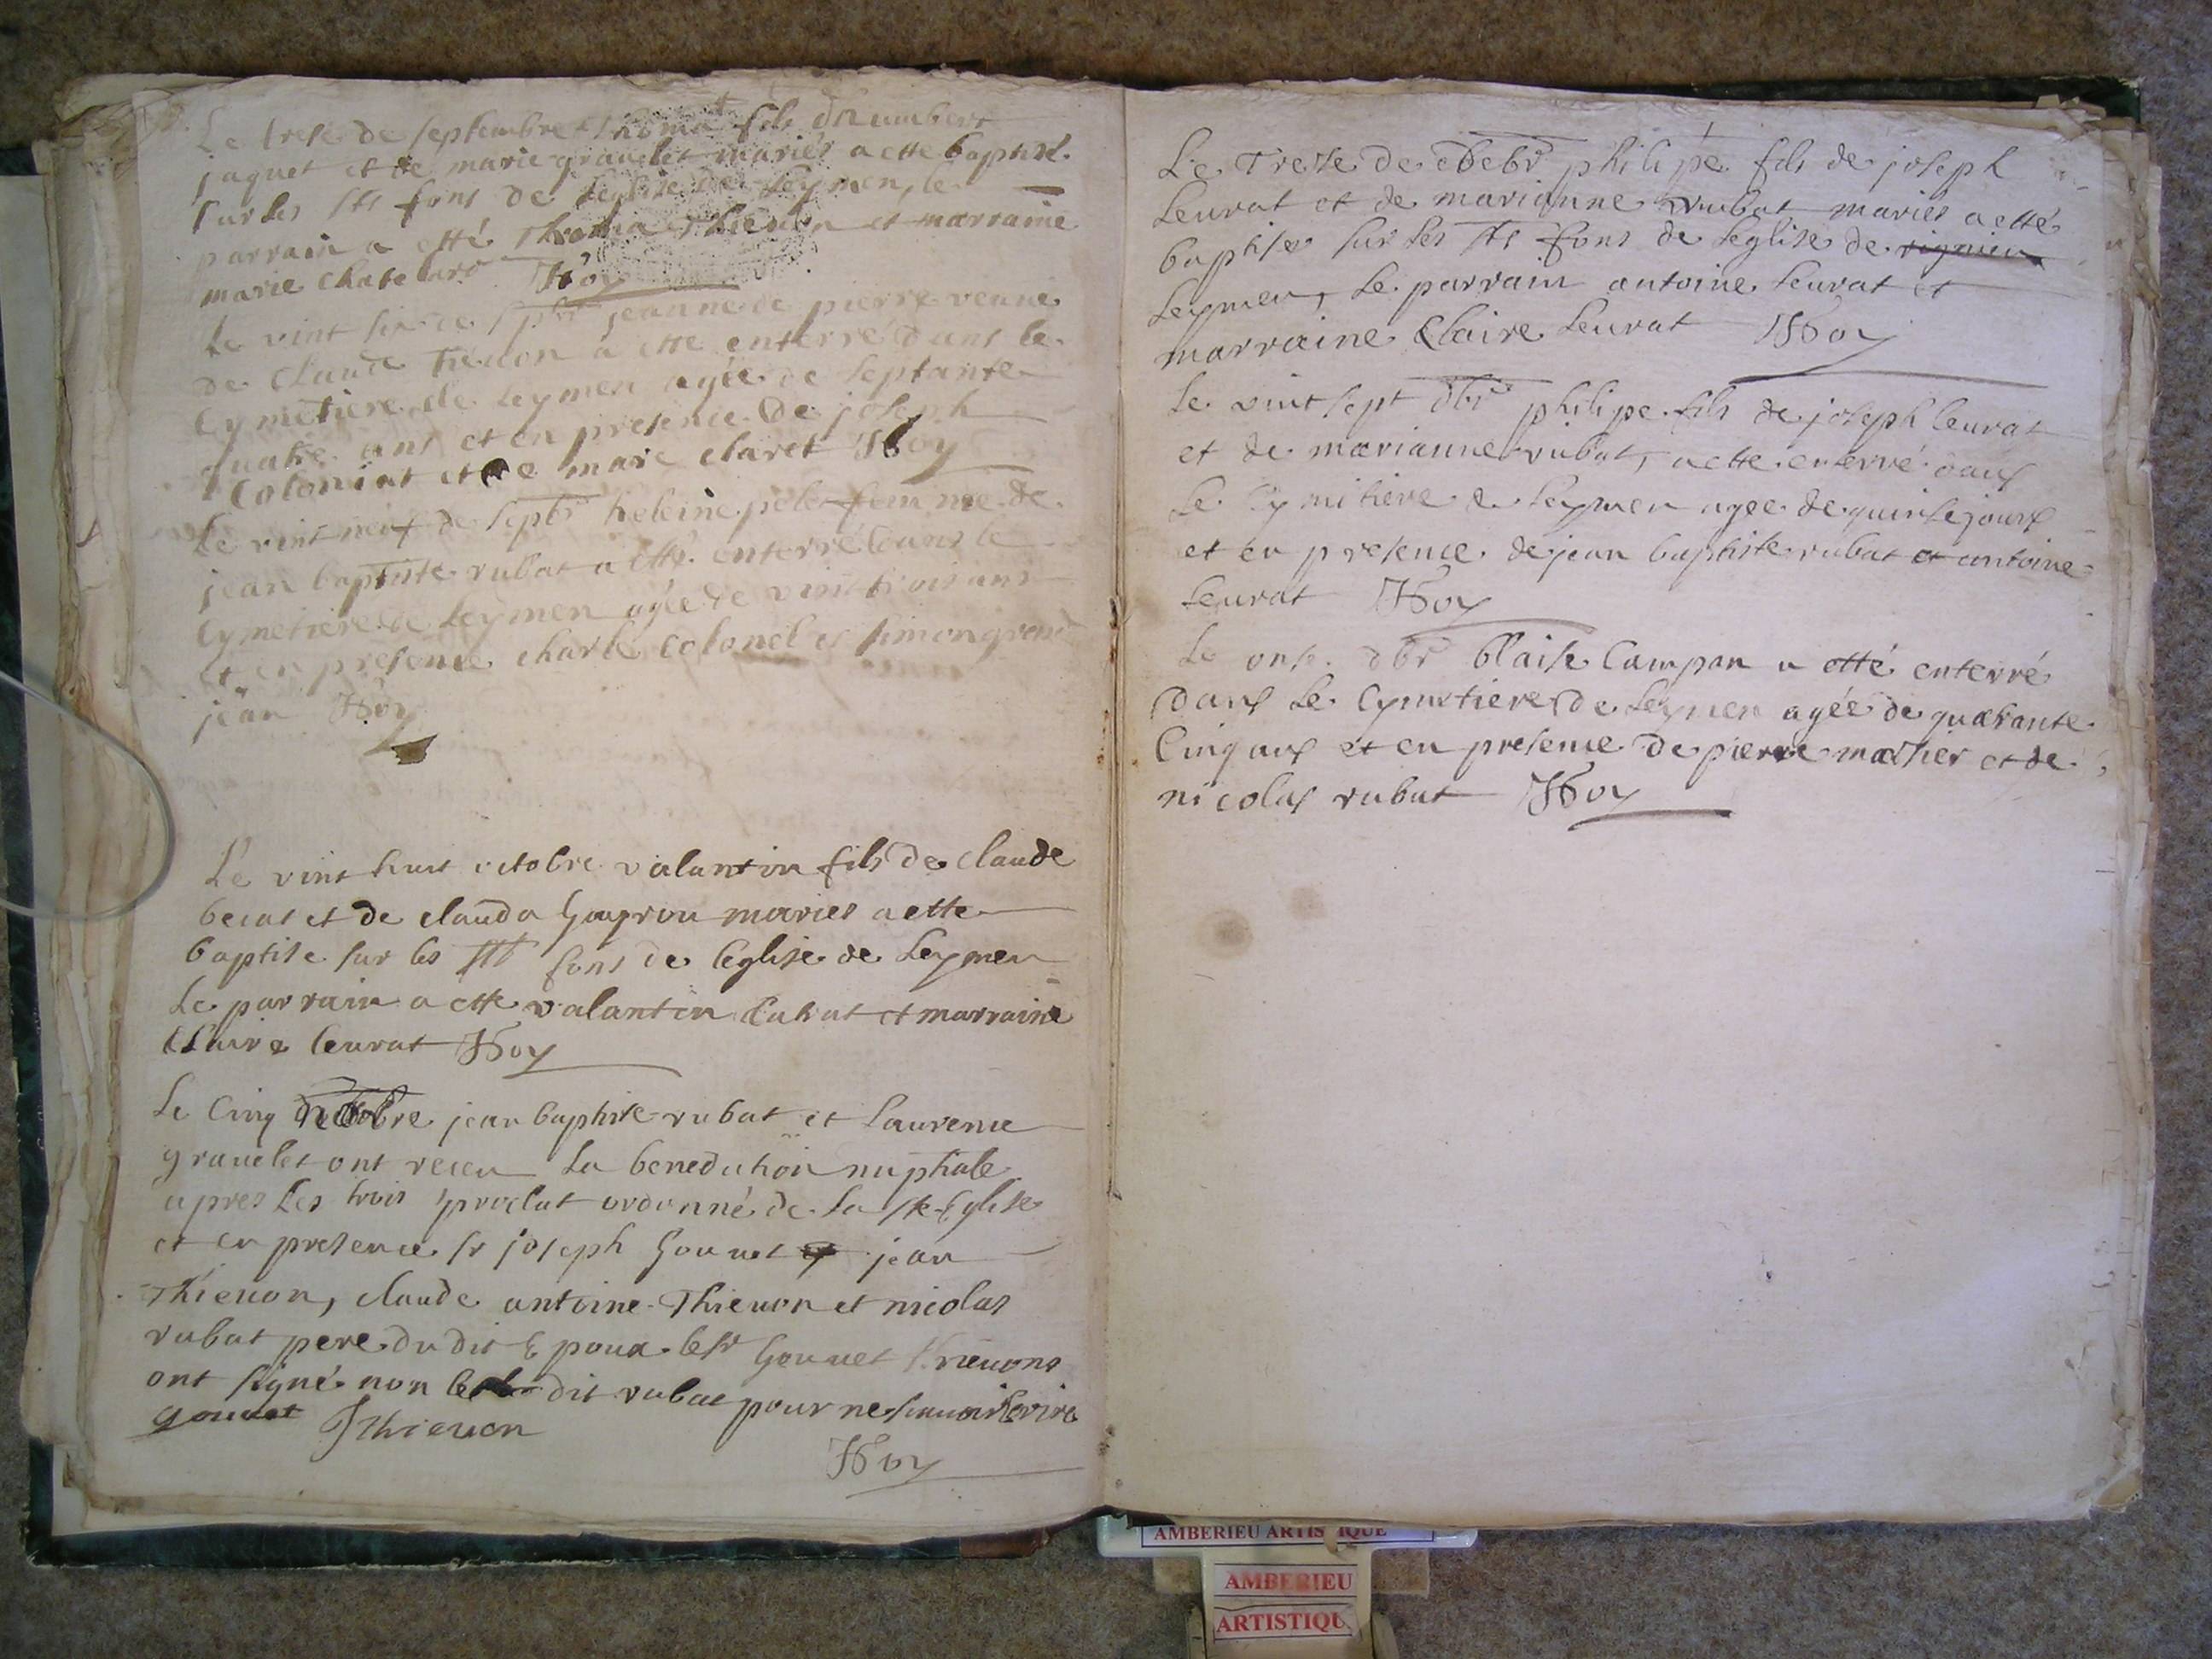 Le trese de septembre Thoma fils d'humbert
jaquet et de marie grauelet mariés a ette baptisé
sur les sts fons de l'eglise de Leymen, le
parrain a etté Thoma Thieuon et marraine
marie chatelard Hoy
Le vint six de spbr jeanne de pierre veuue
de claude Tieuon a ette enterré dans le
Cymetiere de Leymen agée de septante
quatre ans et en presence de joseph
Coloniat et de marc claret Hoy
Le vint neuf de septbr heleine femme de
jean baptiste rubat a etté enterré dans le
Cymetiere de Leymen agée de vint trois ans
et en presence charle colonel et simon
jean Hoy
Le vint huit octobre valantin fils de claude
becat et de clauda mariés a ette
baptise sur les sts fons de leglise de Leymen
Le parrain a ette valantin et marraine
Claire leurat Hoy
Le Cinq jean baptiste rubat et Laurence
grauelet ont receu La benediction nuptiale
apres Les trois proclat ordonné de La ste Eglise
et en presence sr joseph Gouuet et jean
Thieuon, claude antoine Thieuon et nicolas
rubat pere du dit Epoux le sr Gouuet Thieuons
ont signé non le dit rubat pour ne scauoir Ecrire
gouuet JThieuon
Hoy
Le Trese de philipe fils de joseph
Leurat et de marianne rubat mariés a etté
baptise sur Les sts fons de Leglise de
Leymen, Le parrain antoine Leurat et
marraine Claire Leurat Hoy
Le vint sept dbr philipe fils de joseph leurat
et de marianne rubat, a ette enterré dans
Le Cymitiere de Leymen agee de quinse jours
et en presence de jean baptiste rubat et antoine
Leurat Hoy
Le onse dbr blaise Campan a etté enterré
Dans Le Cymetiere de Leymen agée de quarante
Cinq ans et en presence de pierre et de
nicolas rubat Hoy
AMBERIEU ARTISTIQUE
AMBERIEU
ARTISTIQU